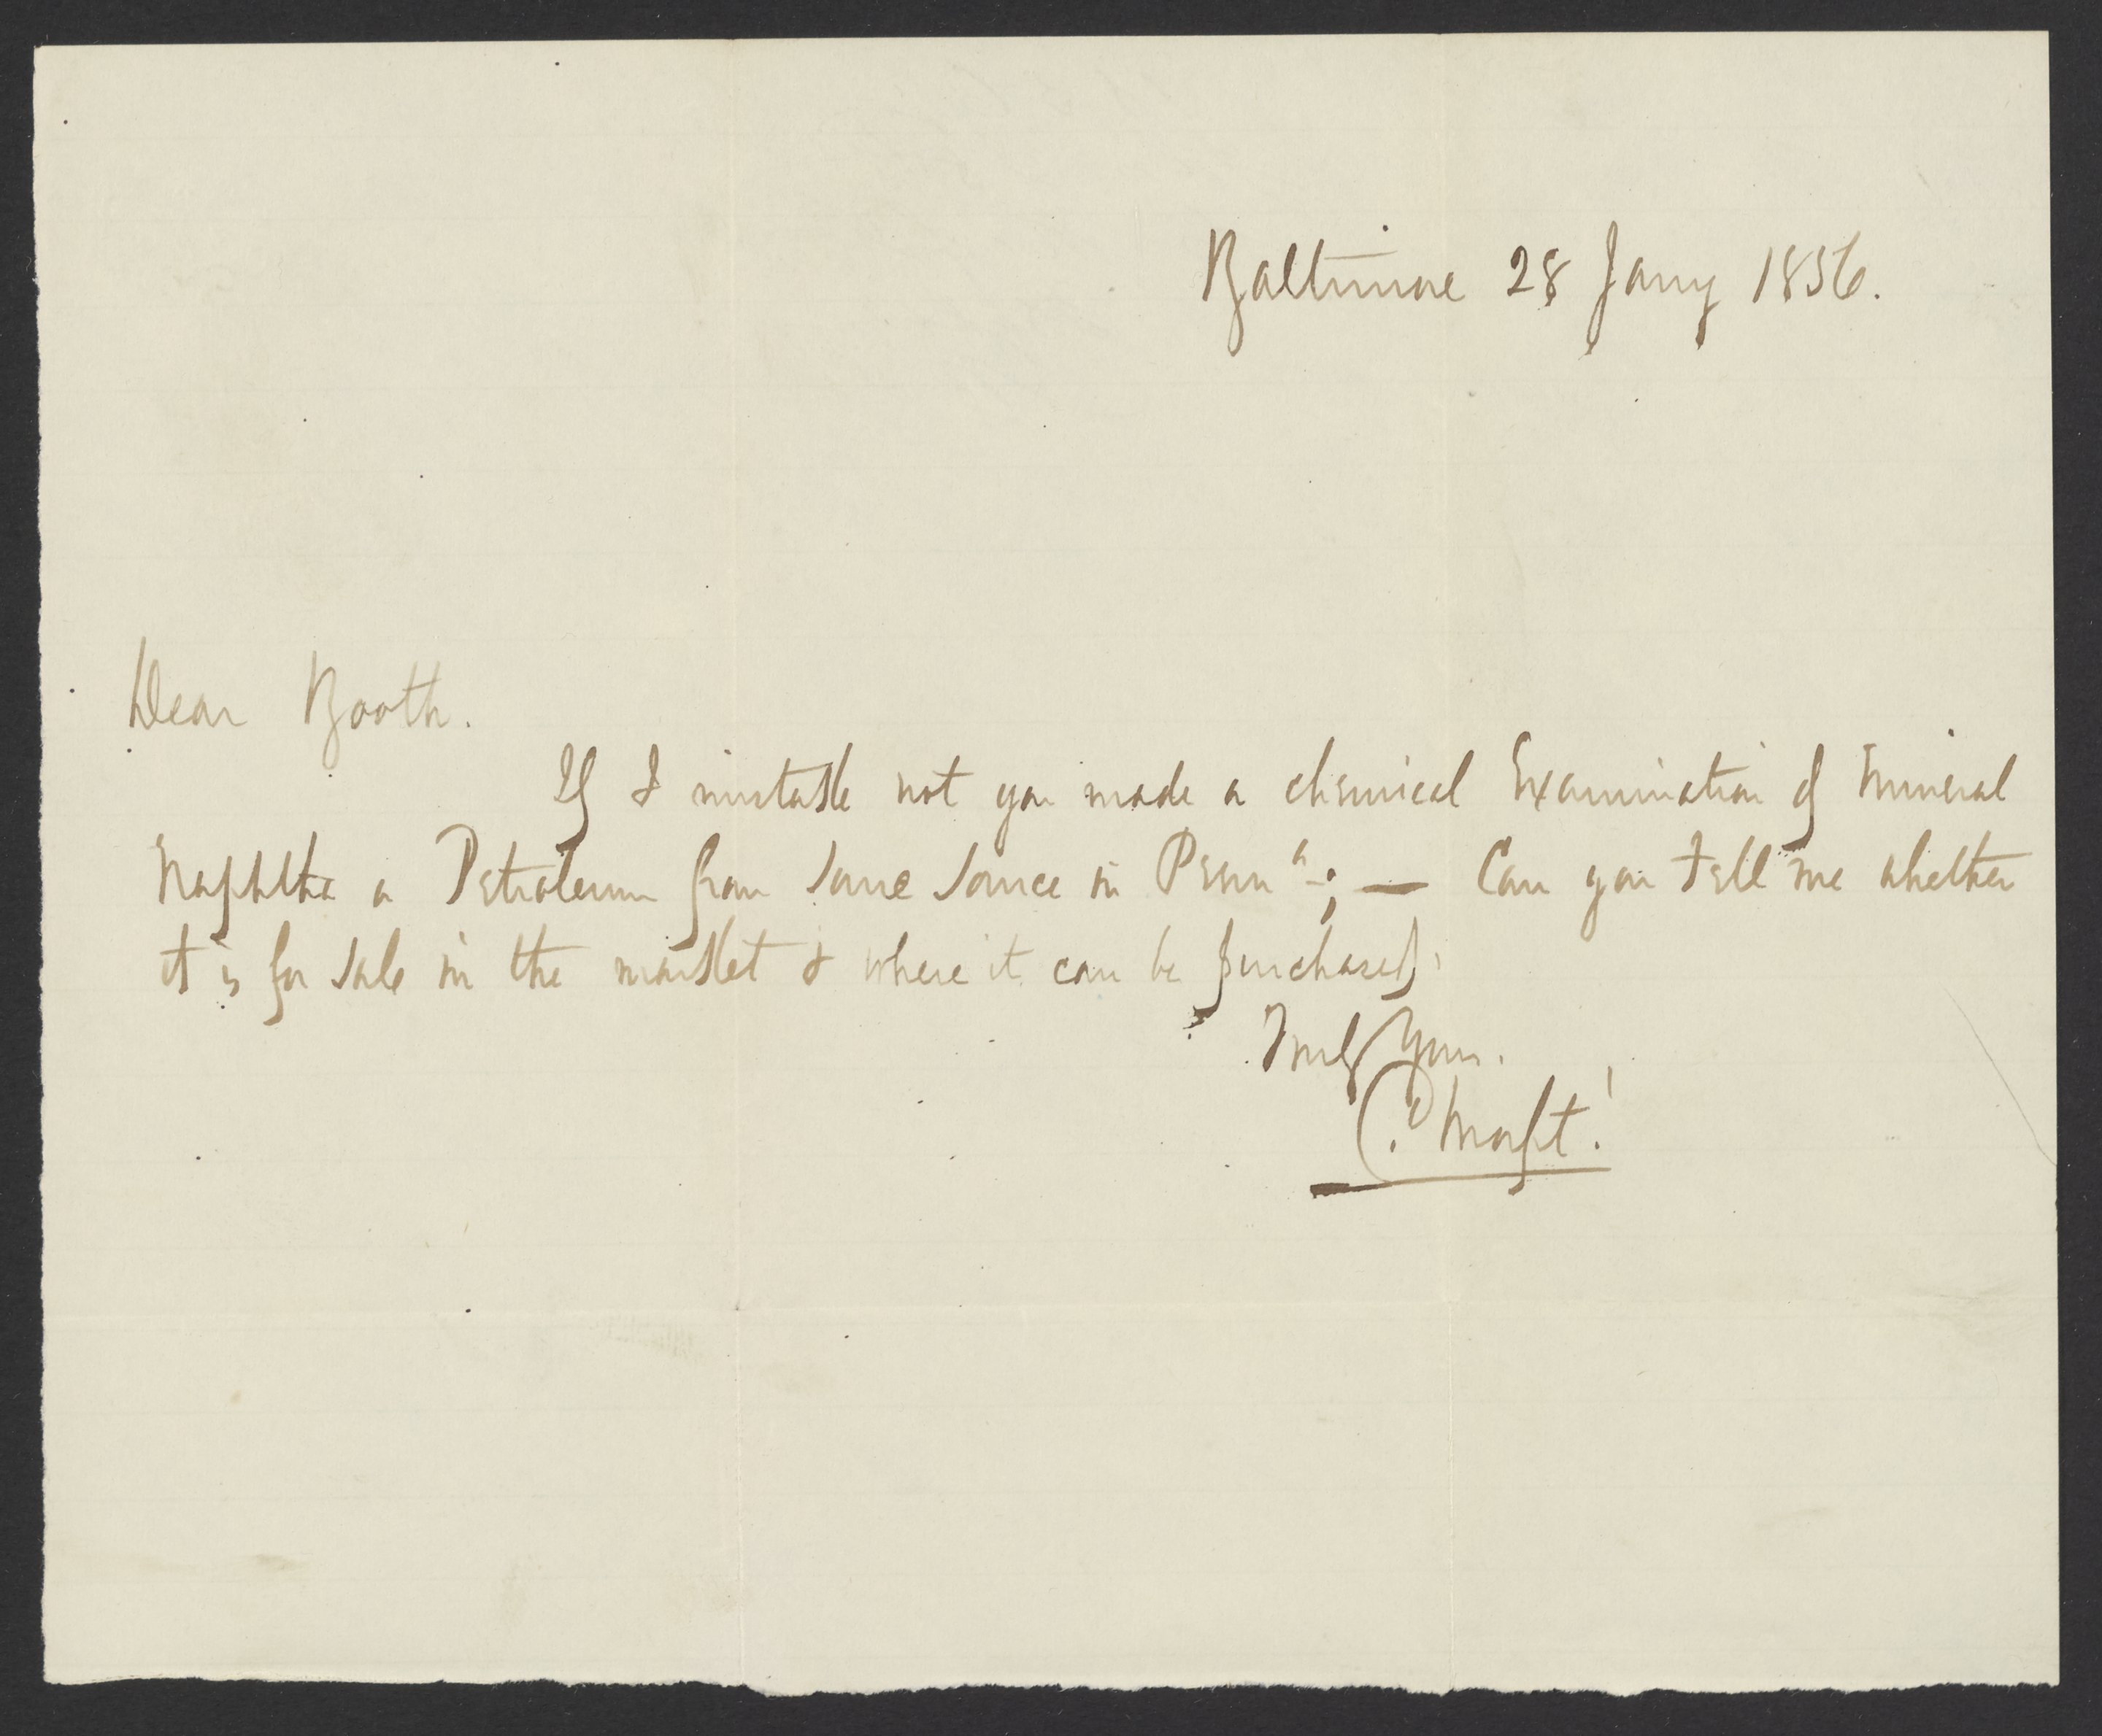 Baltimore 28 Jany 1856.
Dear Booth.
If I mistake not you made a chemical Examination of Mineral
Naphtha or Petroleum from some source in Penna; — Can you tell me whether
it is for sale in the market & where it can be purchased.
Truly Yours.
C. Morfit.